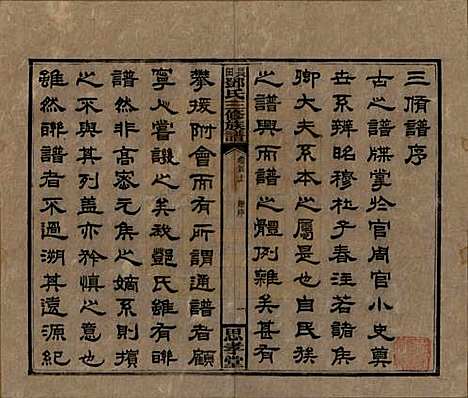 三脩譜序
古之譜牒掌於官周官小史奠
世系辨昭穆杜子春注若諸侯
卿大夫系本之屬是也自民族
之譜興而譜之體例雜矣甚有
長田鄧氏三修族譜
卷首上
序
一
思孝堂
攀援附會而有所謂通譜者顧
寧人嘗譏之矣我鄧氏雖有聯
譜然非高密元侯之嫡系則擯
之不與其列蓋亦矜慎之意也
雖然聯譜者不過溯其遠源紀